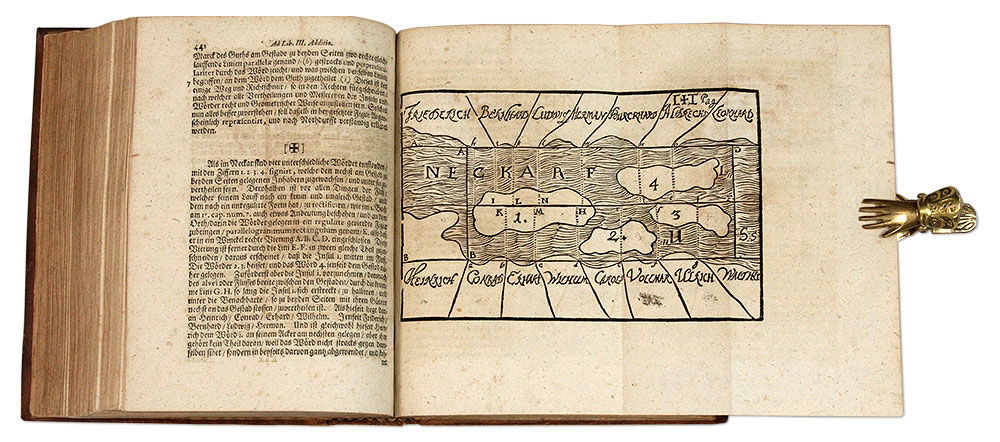 442 Ad Lib. III. Additio.
Marck des Guths am Gestade zu beyden Seiten zwo rechte gleich
lauffende Linien parallelæ genand / (b) gestracks und perpendicu-
lariter durch das Wörd zeucht / und was zwischen derselben Linien
begriffen / an dem Wörd dem Guth zugetheilet (i) Dieses ist der
einige Weg und Richtschnur / so in den Rechten fürgeschrieben /
nach welcher alle Vertheilungen und Messereyen der Insuln und
Wörder recht und Geometrischer Weise anzustellen seyn.
nun alles besser zuverstehen / soll dasselb in hergesetzter Figur Augen-
scheinlich repræsentirt, und nach Nothdurfft verständig erkläret
werden.
[✠]
Als im Neckar sind vier unterschiedliche Wörder entstanden /
mit den Ziffern 1. 2. 3. 4. signirt, welche den nechst am Gestad zu
beyden Seiten gelegenen Inhabern zugewachsen / und unter sie zu-
vertheilen seyn. Derohalben ist vor allen Dingen der Fluß /
welcher seinem Lauff nach ein krum und ungleich Gestad / und
dem nach ein unregulirte Form hat / zu rectificiren, wie
am 1. cap. num. 7. auch etwas Andeutung beschehen / und an dem
Orth / darin die Wörder gelegen in ein regulirte gevierdte Figur
zubringen / parallelogrammum rectangulum genant K. als daß
er in ein Winckel rechte Vierung A. B. C. D. eingeschlossen Diese
Vierung ist ferner durch die Lini E. F. in zween gleiche Theil zu
schneiden / daraus erscheinet / daß die Insul 1. mitten im Fluß /
Die Wörder 2. 3. disseit / und das Wörd 4. jenseit dem Gestad nä-
her gelegen. Zuförderst aber die Insul 1. vorzunehmen / demnach
des alvei oder Flusses breite zwischen den Gestaden / durch die krum-
me Lini G. H. so lang die Insul sich erstreckt / zu halbiren / und
unter die Benachbarte / so zu beyden Seiten mit ihren Gütern
nechst an das Gestad stossen / zuvertheilen ist. Als hieseit liegt dar-
an Heinrich / Conrad / Erhard / Wilhelm. Jenseit Friderich /
Bernhard / Ludwig / Herman. Und ist gleichwohl hieseit Hein-
rich dem Wörd 1. an seinem Acker am nechsten gelegen / aber ihm
gehört kein Theil daran / weil das Wörd nicht stracks gegen dem-
selben sihet / sondern in beyseits darvon gantz abgewendet / und
Pag
FRIEDERICH BERNHARD LUDWIG HERMAN BURCKHARD ALBRECHT LEONHARD
A A D
NECKAR F
4
I L N
K M H
1.
3
2.
B B
HEINRICH CONRAD ERHART WILHELM CAROL VOLLMAR ULRICH WALTHER